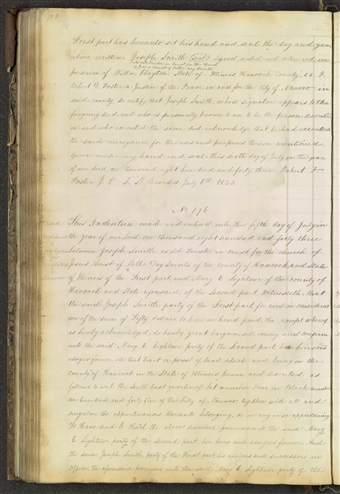 First part has hereunto set his hand and seal the day and year
above written Joseph Smith (Seal) Signed sealed and delivered in
presence of William Clayton State of Illinois Hancock County, ss. I
Robert D Foster a Justice of the Peace in and for the City of Nauvoo in
said county do certify that Joseph Smith, whose signature appears to the
foregoing deed and who is personally known to me to be the person described
in and who executed the same did acknowledge that he had executed
the said conveyance for the uses and purposes therein mentioned.
Given under my hand and seal this sixth day of July in the year
of our Lord one thousand eight hundred and forty three Robert D
Foster J. P. L. S. Recorded July 8th 1843
No 176
This Indenture made and entered into this fifth day of July in
the year of our Lord one thousand and eight hundred and forty three
between Joseph Smith, sole Trustee in Trust for the church of
Jesus Christ of Latter Day Saints of the county of Hancock and State
of Illinois of the first part and Mary E Lightner of the county of
Hancock and State aforesaid of the second part Witnesseth, that
the said Joseph Smith, party of the first part for and in consideration
of the sum of Fifty dollars to him in hand paid the receipt whereof
is hereby acknowledged, do hereby grant bargain sell convey and confirm
unto the said Mary E Lightner party of the second part her heirs and
assigns forever all that tract or parcel of land situate and being in the
county of Hancock in the State of Illinois known and described as
follows to wit the South East quarter of Lot number Four in Block number
one hundred and forty five of the City of Nauvoo together with all and
singular the appurtenances thereunto belonging, or in any wise appertaining
To Have and to Hold the above described premises unto the said Mary
E Lightner party of the second part, her heirs and assigns forever. And
the said Joseph Smith, party of the first part his assigns and successors in
office the aforesaid premises unto the said Mary E Lightner party of the